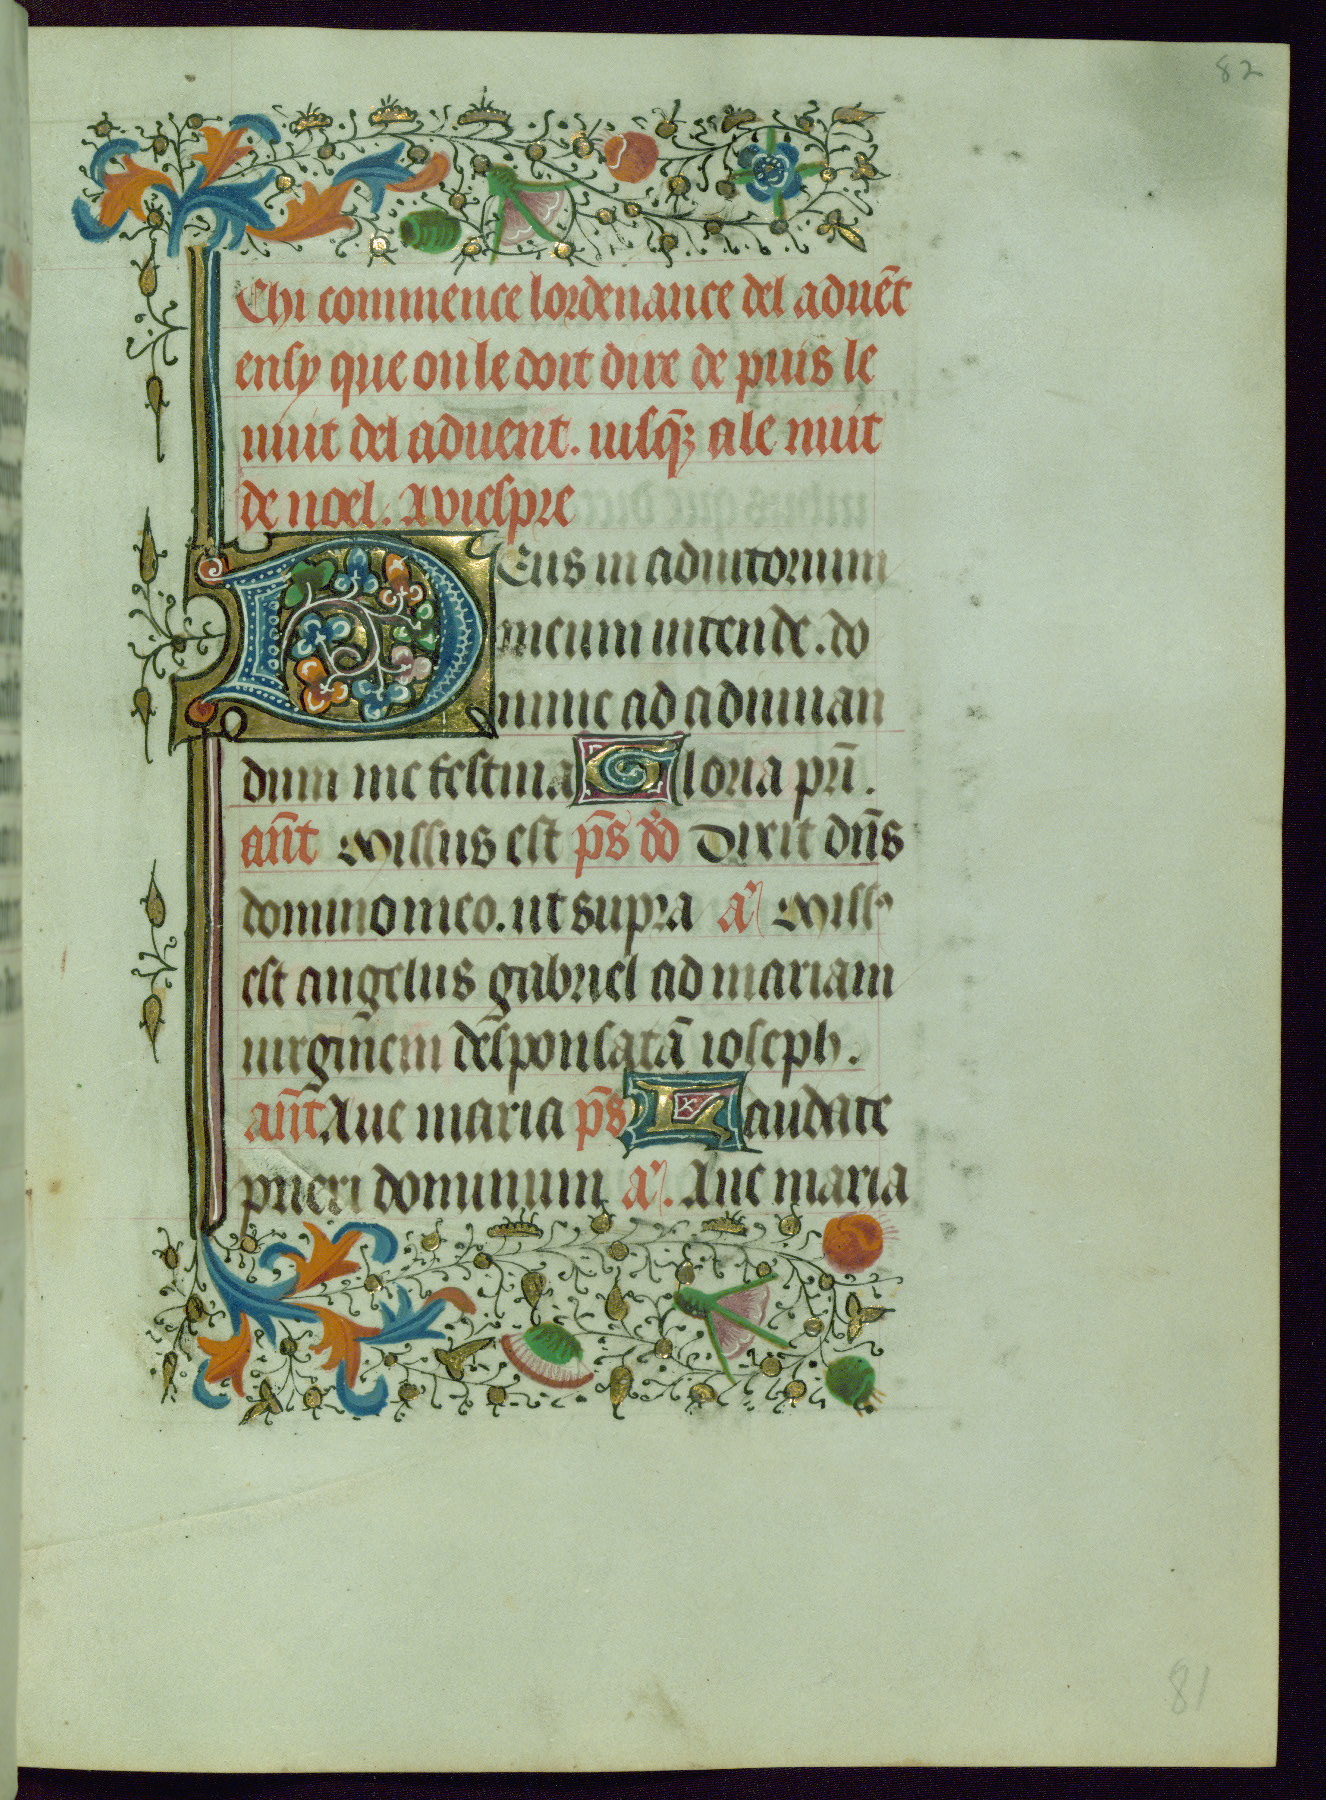 82
Chi commence lordenance del aduẽt
ensy que on le doit dire de puis le
nuit del aduent. iusq̃ ale nuit
de noel. A viespre
Deus in adiutorium
meum intende. do
mine ad adiuuan
dum me festina Gloria pr̃i.
añt Missus est p̃s dd Dixit dñs
domino meo. ut supra a Miss9
est angelus gabriel ad mariam
uirginem desponsatã ioseph.
añt Aue maria p̃s Laudate
pueri dominum a. Aue maria
81